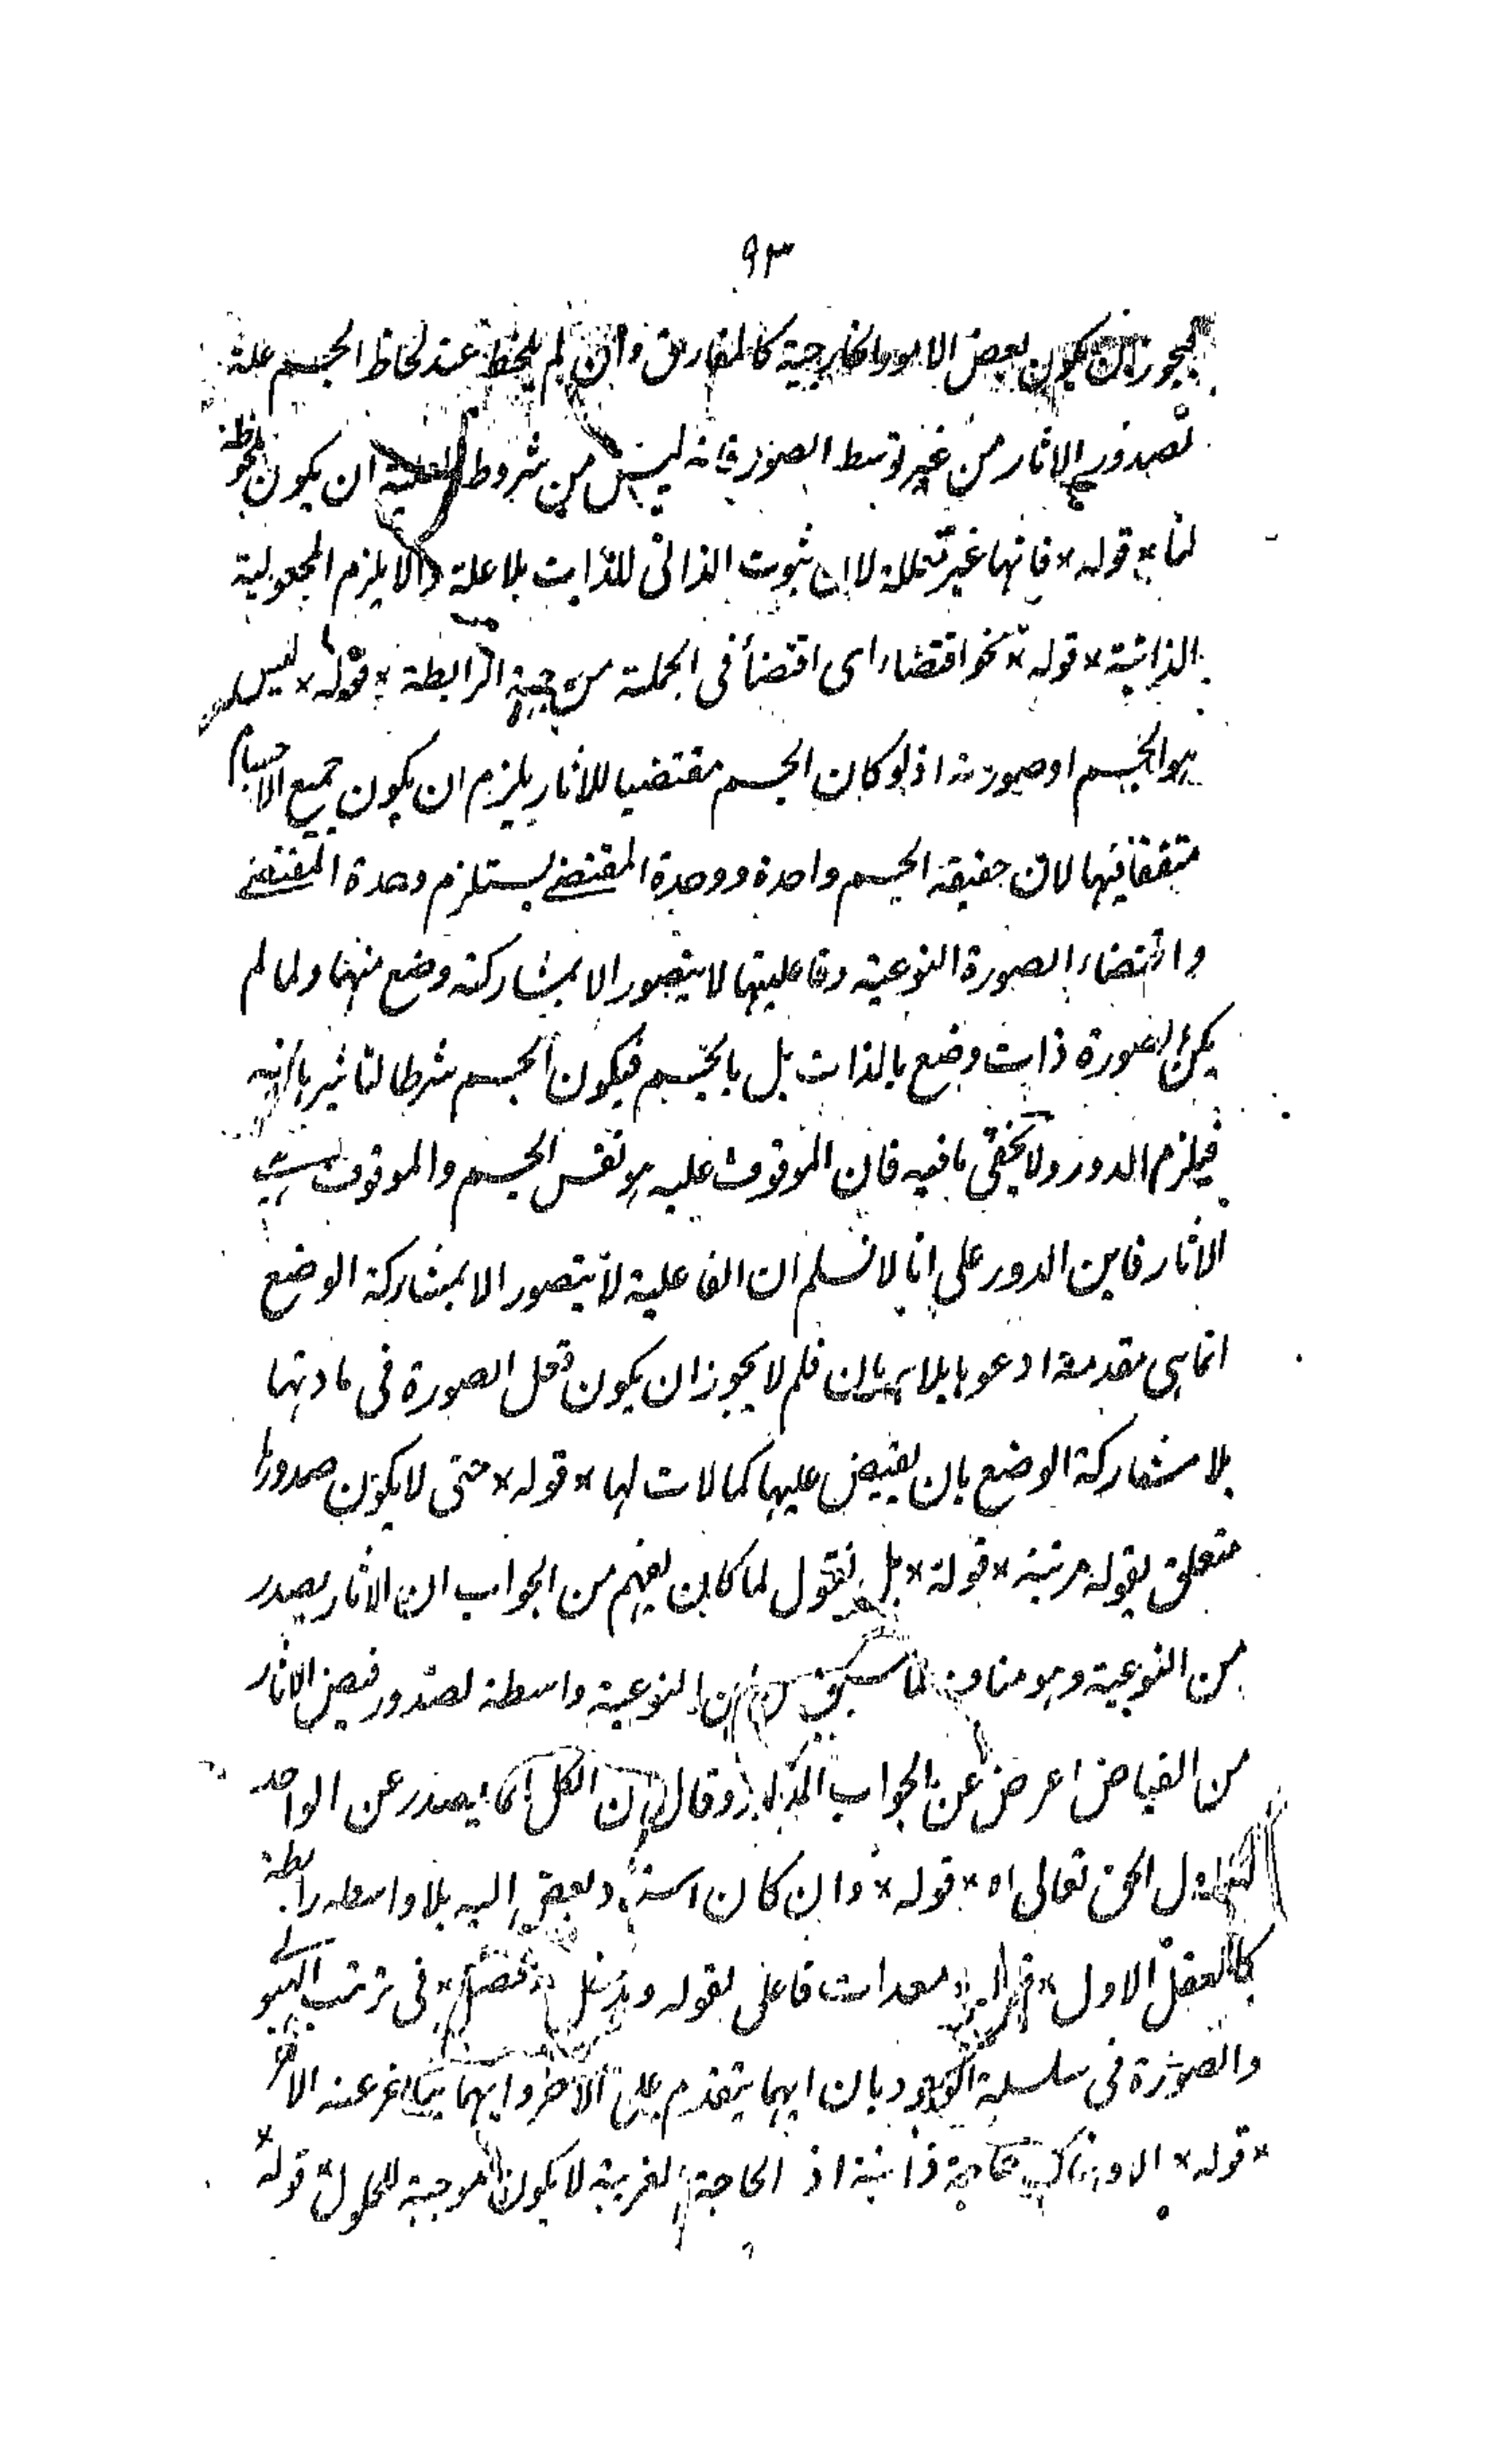 ٩٣
فيجوز ان يكون بعض الامور الخارجية كالمفارق وان لم يلحظ عند لحاظ الجسم علة
لصدور الاثار من غير توسط الصور فانه ليس من شروط العلية ان يكون ملحوظة
لنا * قوله * فانها غير معللة لان ثبوت الذاتى للذات بلا علة والا يلزم المجعولية
الذاتية * قوله * نحو اقتضاء اى اقتضأ فى الجملة من جهة الرابطة * قوله * ليس
هو الجسم او صورته اذ لو كان الجسم مقتضيا للاثار يلزم ان يكون جميع الاجسام
متفقا فيها لان حقيقة الجسم واحدة ووحدة المقتضى يستلزم وحدة المقتضى
واقتضاء الصورة النوعية وفاعليتها لا يتصور الا بمشاركة وضع منها ولما لم
يكن الصورة ذات وضع بالذات بل بالجسم فيكون الجسم شرطا لتاثيرها فيه
فيلزم الدور ولا يخفى ما فيه فان الموقوف عليه هو نفس الجسم والموقوف هى
الاثار فاين الدور على انا لا نسلم ان الفاعلية لا يتصور الا بمشاركة الوضع
انما هى مقدمة ادعوها بلا برهان فلم لا يجوز ان يكون فعل الصورة فى مادتها
بلا مشاركة الوضع بان يفيض عليها كمالات لها * قوله * حتى لا يكون صدورها
متعلق بقوله مرتبة * قوله * بل نقول لما كان يفهم من الجواب ان الاثار يصدر
من النوعية وهو مناف لما سبق من ان النوعية واسطة لصدور فيض الاثار
من الفياض اعرض عن الجواب المذكور وقال ان الكل انما يصدر عن الواحد
الاول الحق تعالى اه * قوله * وان كان اسناد بعض اليه بلا واسطه رابطة
كالعقل الاول * قوله * معدات فاعلى لقوله ويدخل * فى ترتب الهيولى
والصورة فى سلسلة الوجود بان ايهما يتقدم على الاخر وايهما يتاخر عنه الاخر
* قوله * الا وهناك حاجة ذاتية اذ الحاجة الغريبة لا يكون موجبة للحلول * قوله *